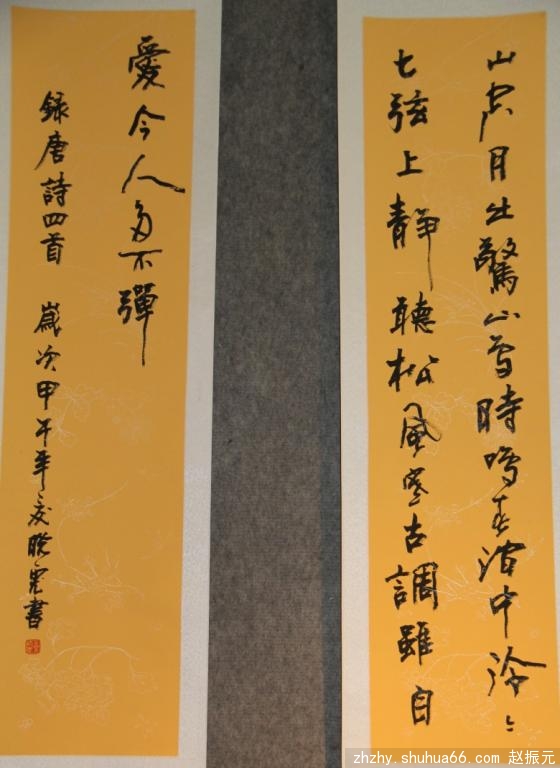 山空月出驚山鸟時鳴春澗中泠〻
七弦上靜聽松風寒古調雖自
愛今人多不彈
録唐詩四首 嵗次甲午年
書
zhzhy.shuhua66.com 赵振元